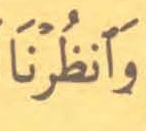 وَٱنظُرْنَا